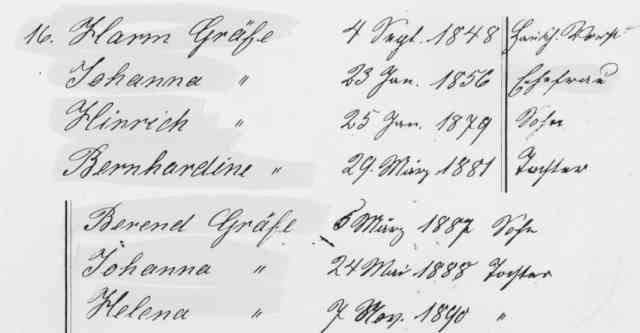 16. Harm Gräfe 4 Sept. 1848 Haush. Vorst.
Johanna " 23 Jan. 1856 Ehefrau
Hinrich " 25 Jan. 1879 Sohn
Bernhardine " 29. März 1881 Tochter
Berend Gräfe 5 März 1887 Sohn
Johanna " 24 Mai 1888 Tochter
Helena " 7 Nov. 1890 "